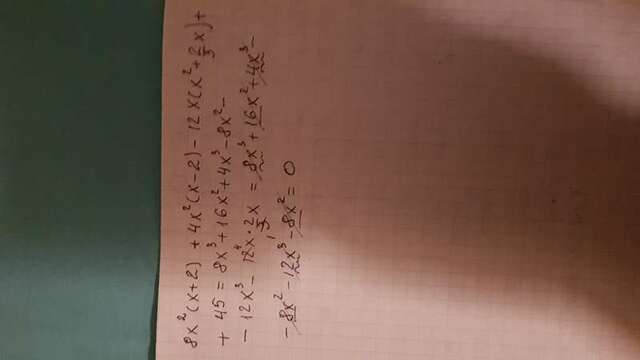 8x²(x+2) + 4x²(x-2) - 12x(x²+2/3x)+
+ 45 = 8x³+16x²+4x³-8x²-
- 12x³ - 12⁴x · 2/3₁x = 8x³+16x²+4x³-
- 8x² - 12x³ - 8x² = 0